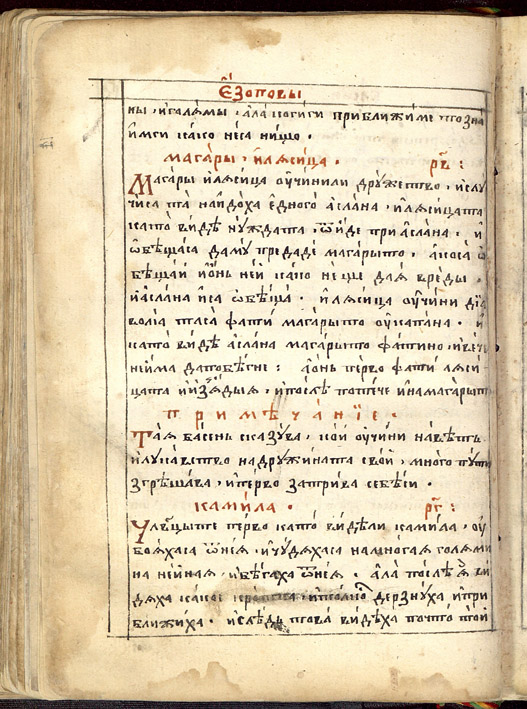 Е҆ЗОПОВЫ
ны , и голямы , ала когиги приближиме позна
имги како неса нищо .
магары , и лясица . рв҃ :
Магары и лясица ꙋчинили дрꙋжество , и слꙋ
чиса та найдоха едного аслана , и лясицата
като видѣ нꙋждата , ѿиде при аслана , и
ѡбѣщаса даму предаде магарыто , акоса ѡ
бѣщай и онъ ней како неще да я вреды .
и аслана иса ѡбѣща . и лясица ꙋчини дїа
волїа таса фати магарыто ꙋ капана . и
като видѣ аслана магарыто фатино , и вече
нейма да побѣгне : а онъ перво фати ляси
цата и изѧдыя , и послѣ потече и на магарыт
ПРИМѢЧАНЇЕ .
Тая баснь сказува , кой ꙋчини навѣтъ
и лꙋкавство на дрꙋжината свой , много пꙋти
згрѣшава , и перво затрива себѣси .
камила . рг҃ :
Чл҃вцыте перво като видѣли камила , ꙋ
бояхаса ѿ нея , и чꙋдяхаса на многая голями
на нейная , и бѣгаха ѿ нея . ала послѣ я ви
дяха какое кротка , и полно дерзнꙋха и при
ближиха . и слѣдъ това видѣха почто той